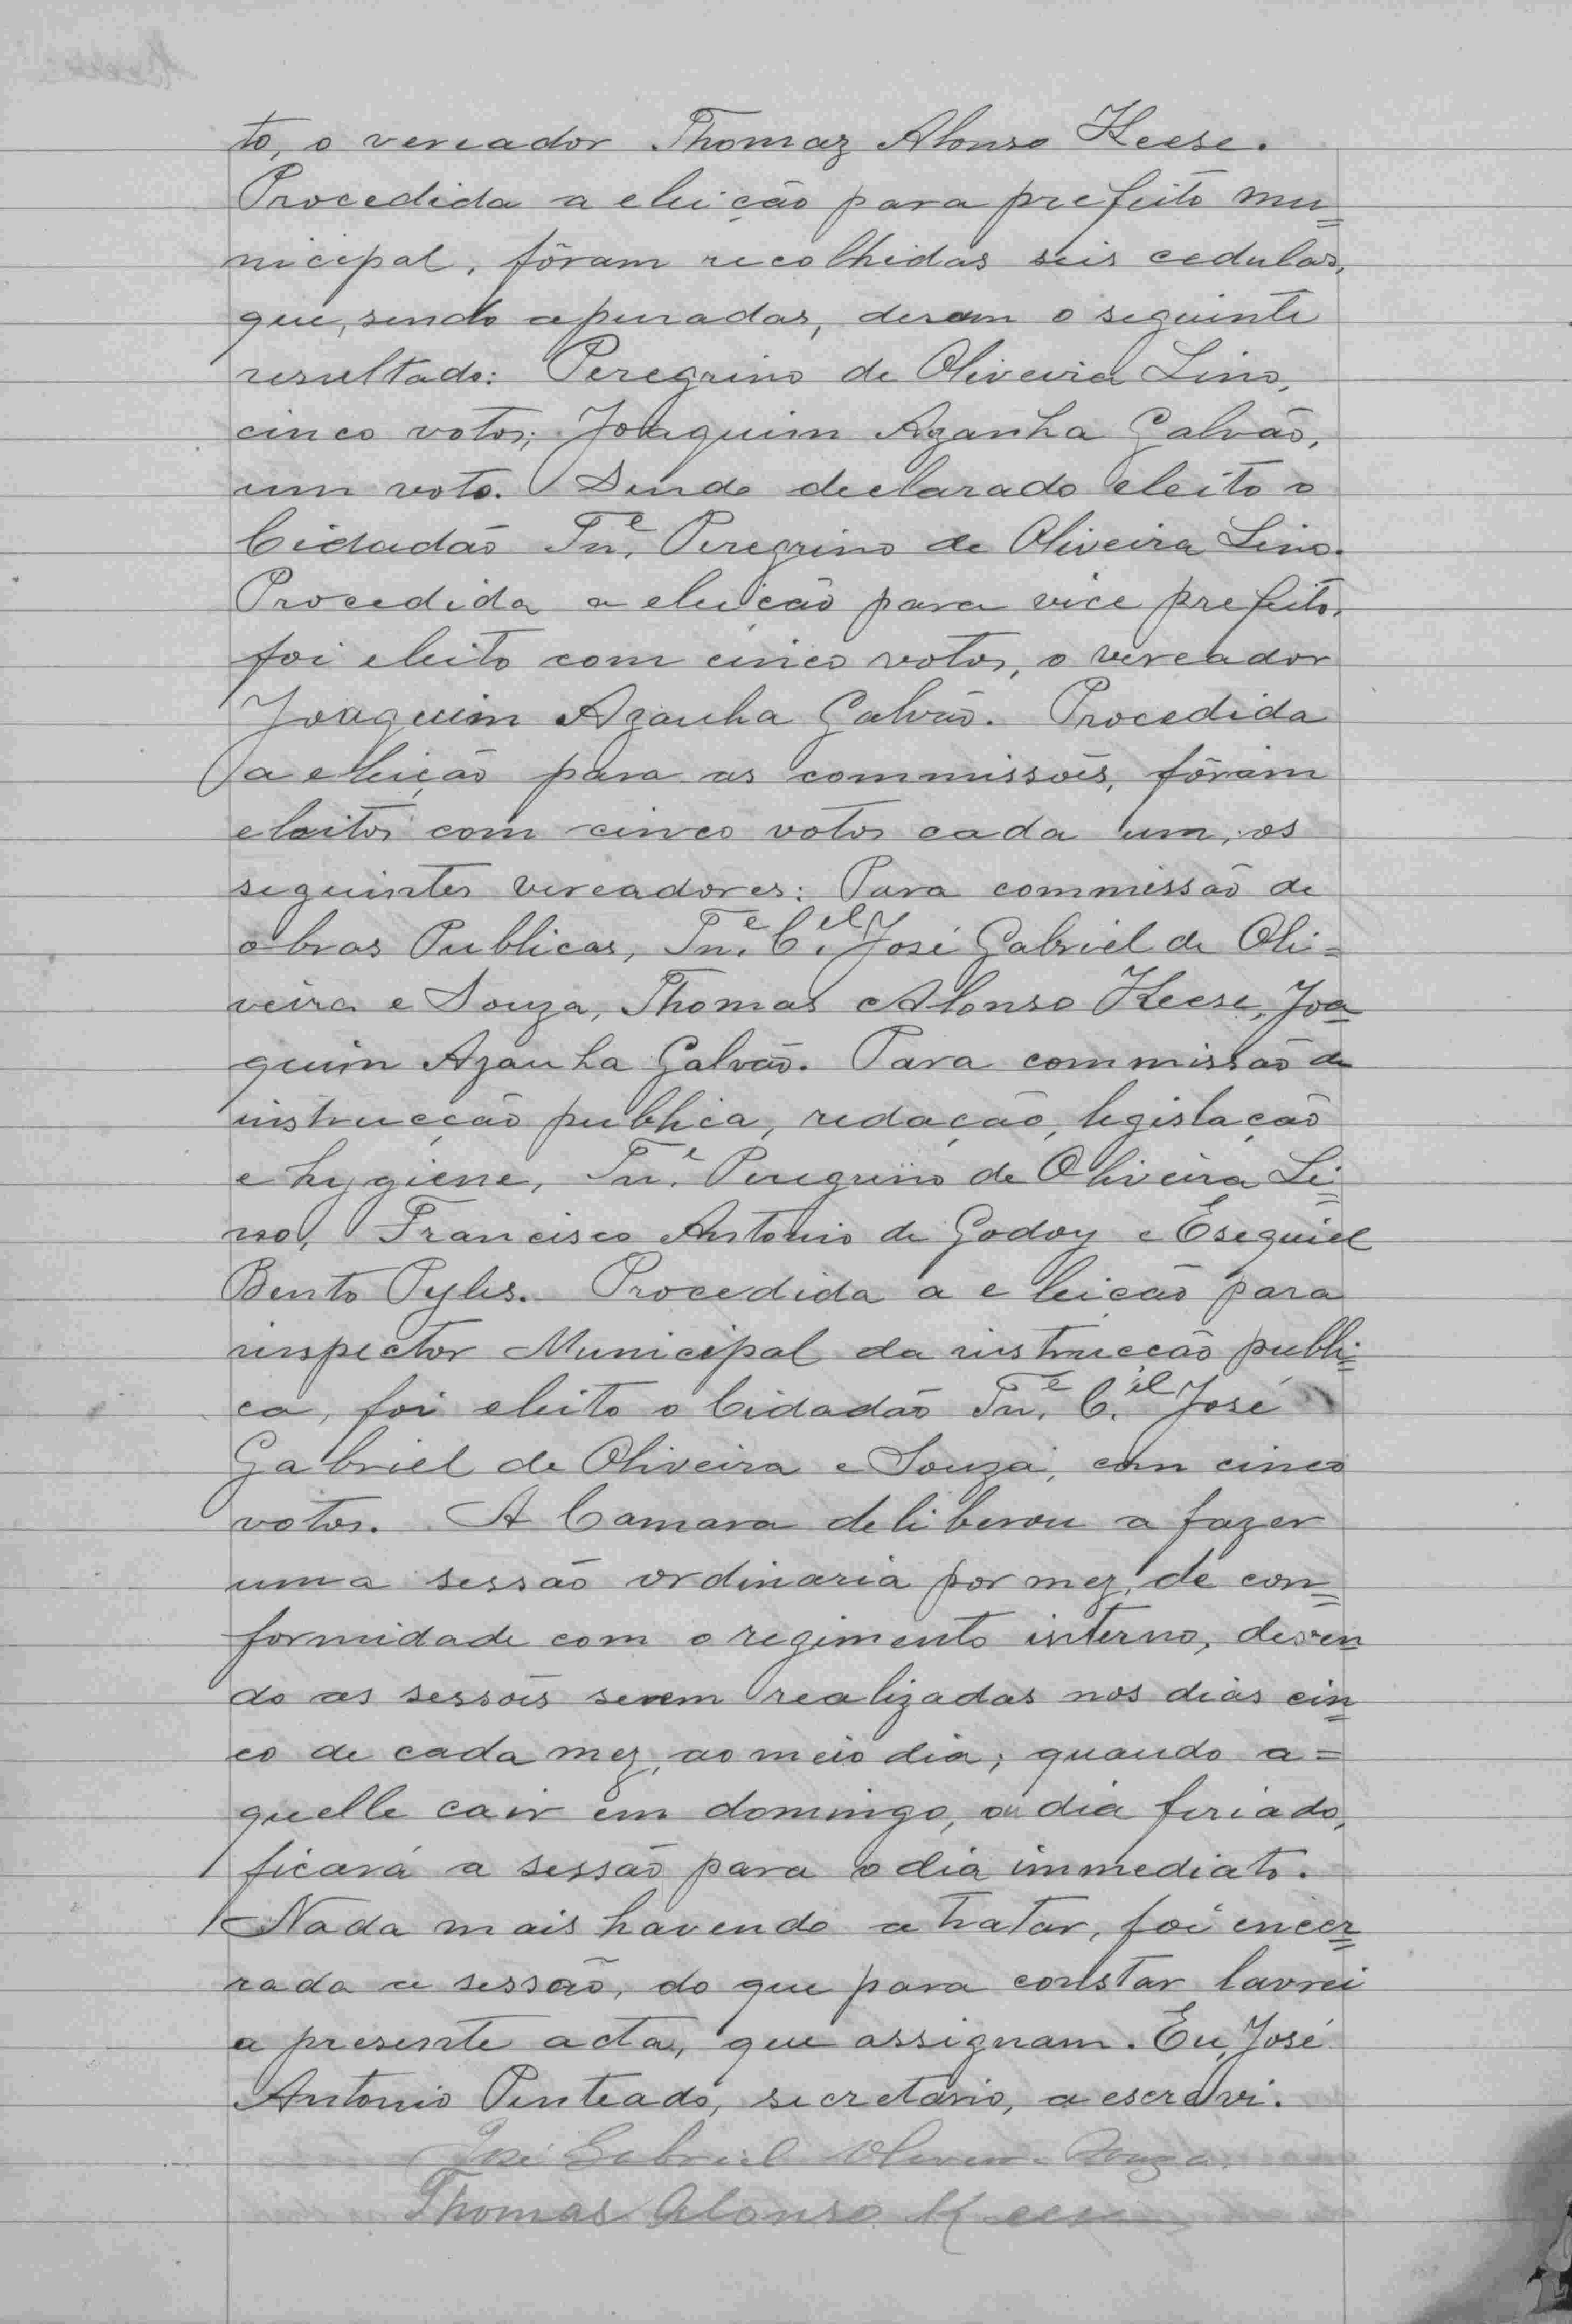 to, o vereador Thomaz Alonso Keese.
Procedida a eleição para prefeito mu=
nicipal, fôram recolhidas seis cedulas,
que, sendo apuradas, deram o seguinte
resultado: Peregrino de Oliveira Lino,
cinco votos; Joaquim Azanha Galvão,
um voto. Sendo declarado eleito o
Cidadão Tn.e Peregrino de Oliveira Lino.
Procedida a eleição para vice prefeito,
foi eleito com cinco votos, o vereador
Joaquim Azanha Galvão. Procedida
a eleição para as commissões, fôram
eleitos com cinco votos cada um, os
seguintes vereadores: Para commissão de
obras Publicas, Tn.e C.el José Gabriel de Oli=
veira e Souza, Thomas Alonso Keese, Joa=
quim Azanha Galvão. Para commissão de
instrucção publica, redação, legislação
e hygiene, Tn.e Peregrino de Oliveira Li=
no, Francisco Antonio de Godoy e Esequiel
Bento Pyles. Procedida a eleição para
inspector Municipal da instrucção publi=
ca, foi eleito o Cidadão Tn.e C.el José
Gabriel de Oliveira e Souza, com cinco
votos. A Camara deliberou a fazer
uma sessão ordinaria por mez, de con=
formidade com o regimento interno, deven=
do as sessões serem realizadas nos dias cin=
co de cada mez, ao meio dia; quando a=
quelle cair em domingo, ou dia feriado,
ficará a sessão para o dia immediato.
Nada mais havendo a tratar, foi encer=
rada a sessão, do que para constar lavrei
a presente acta, que assignam. Eu, José
Antonio Penteado, secretario, a escrevi.
José Gabriel Oliveira Souza
Thomas Alonso Keese